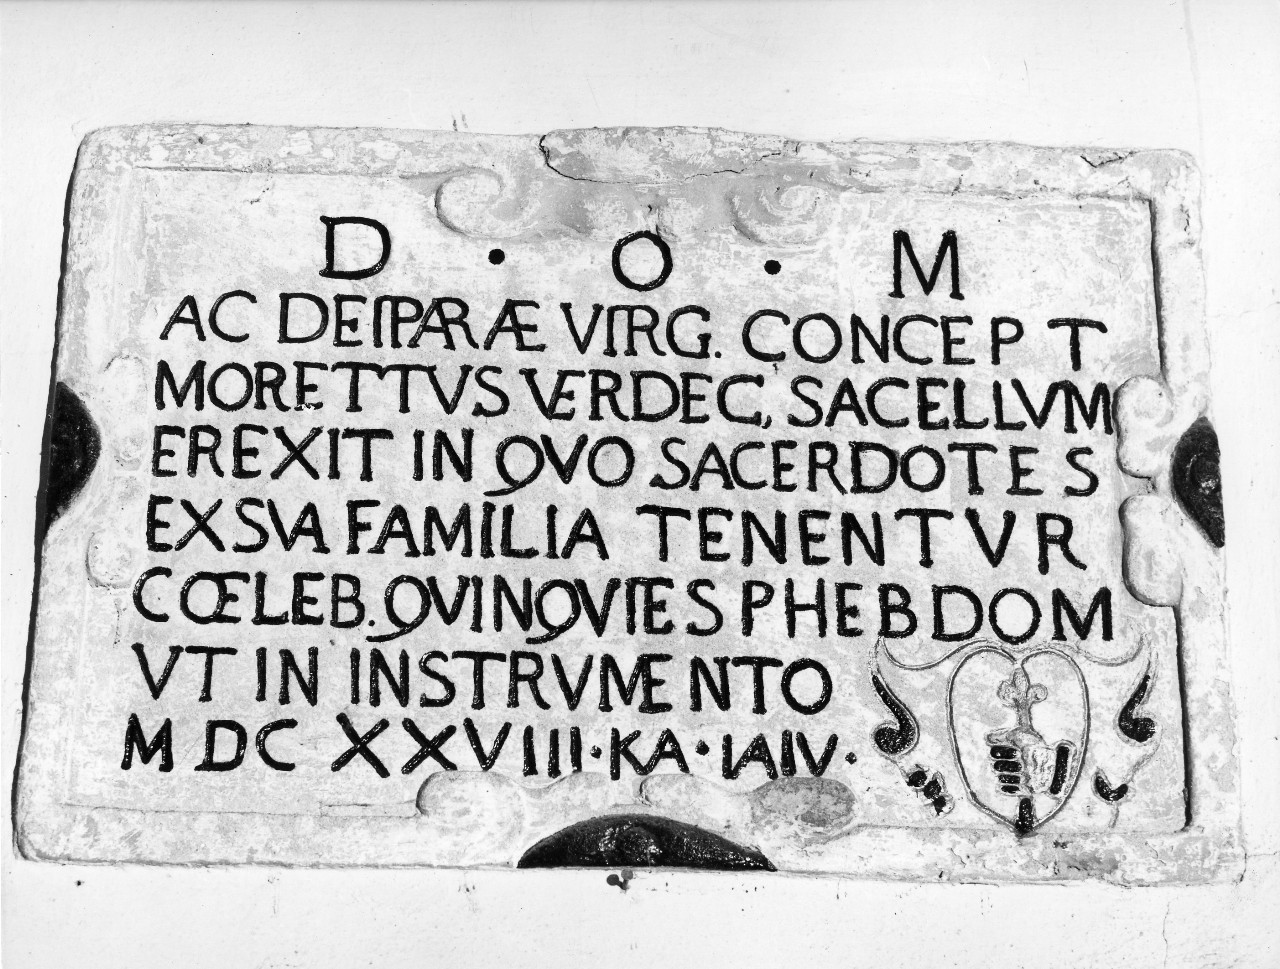 D · O · M
AC DEIPARÆ VIRG. CONCEPT
MORETTUS VERDEC, SACELLVM
EREXIT IN QVO SACERDOTES
EX SVA FAMILIA TENENTVR
CŒLEB. QVINQVIES PHEBDOM
VT IN INSTRVMENTO
MDCXXVIII·KA·IAIV·